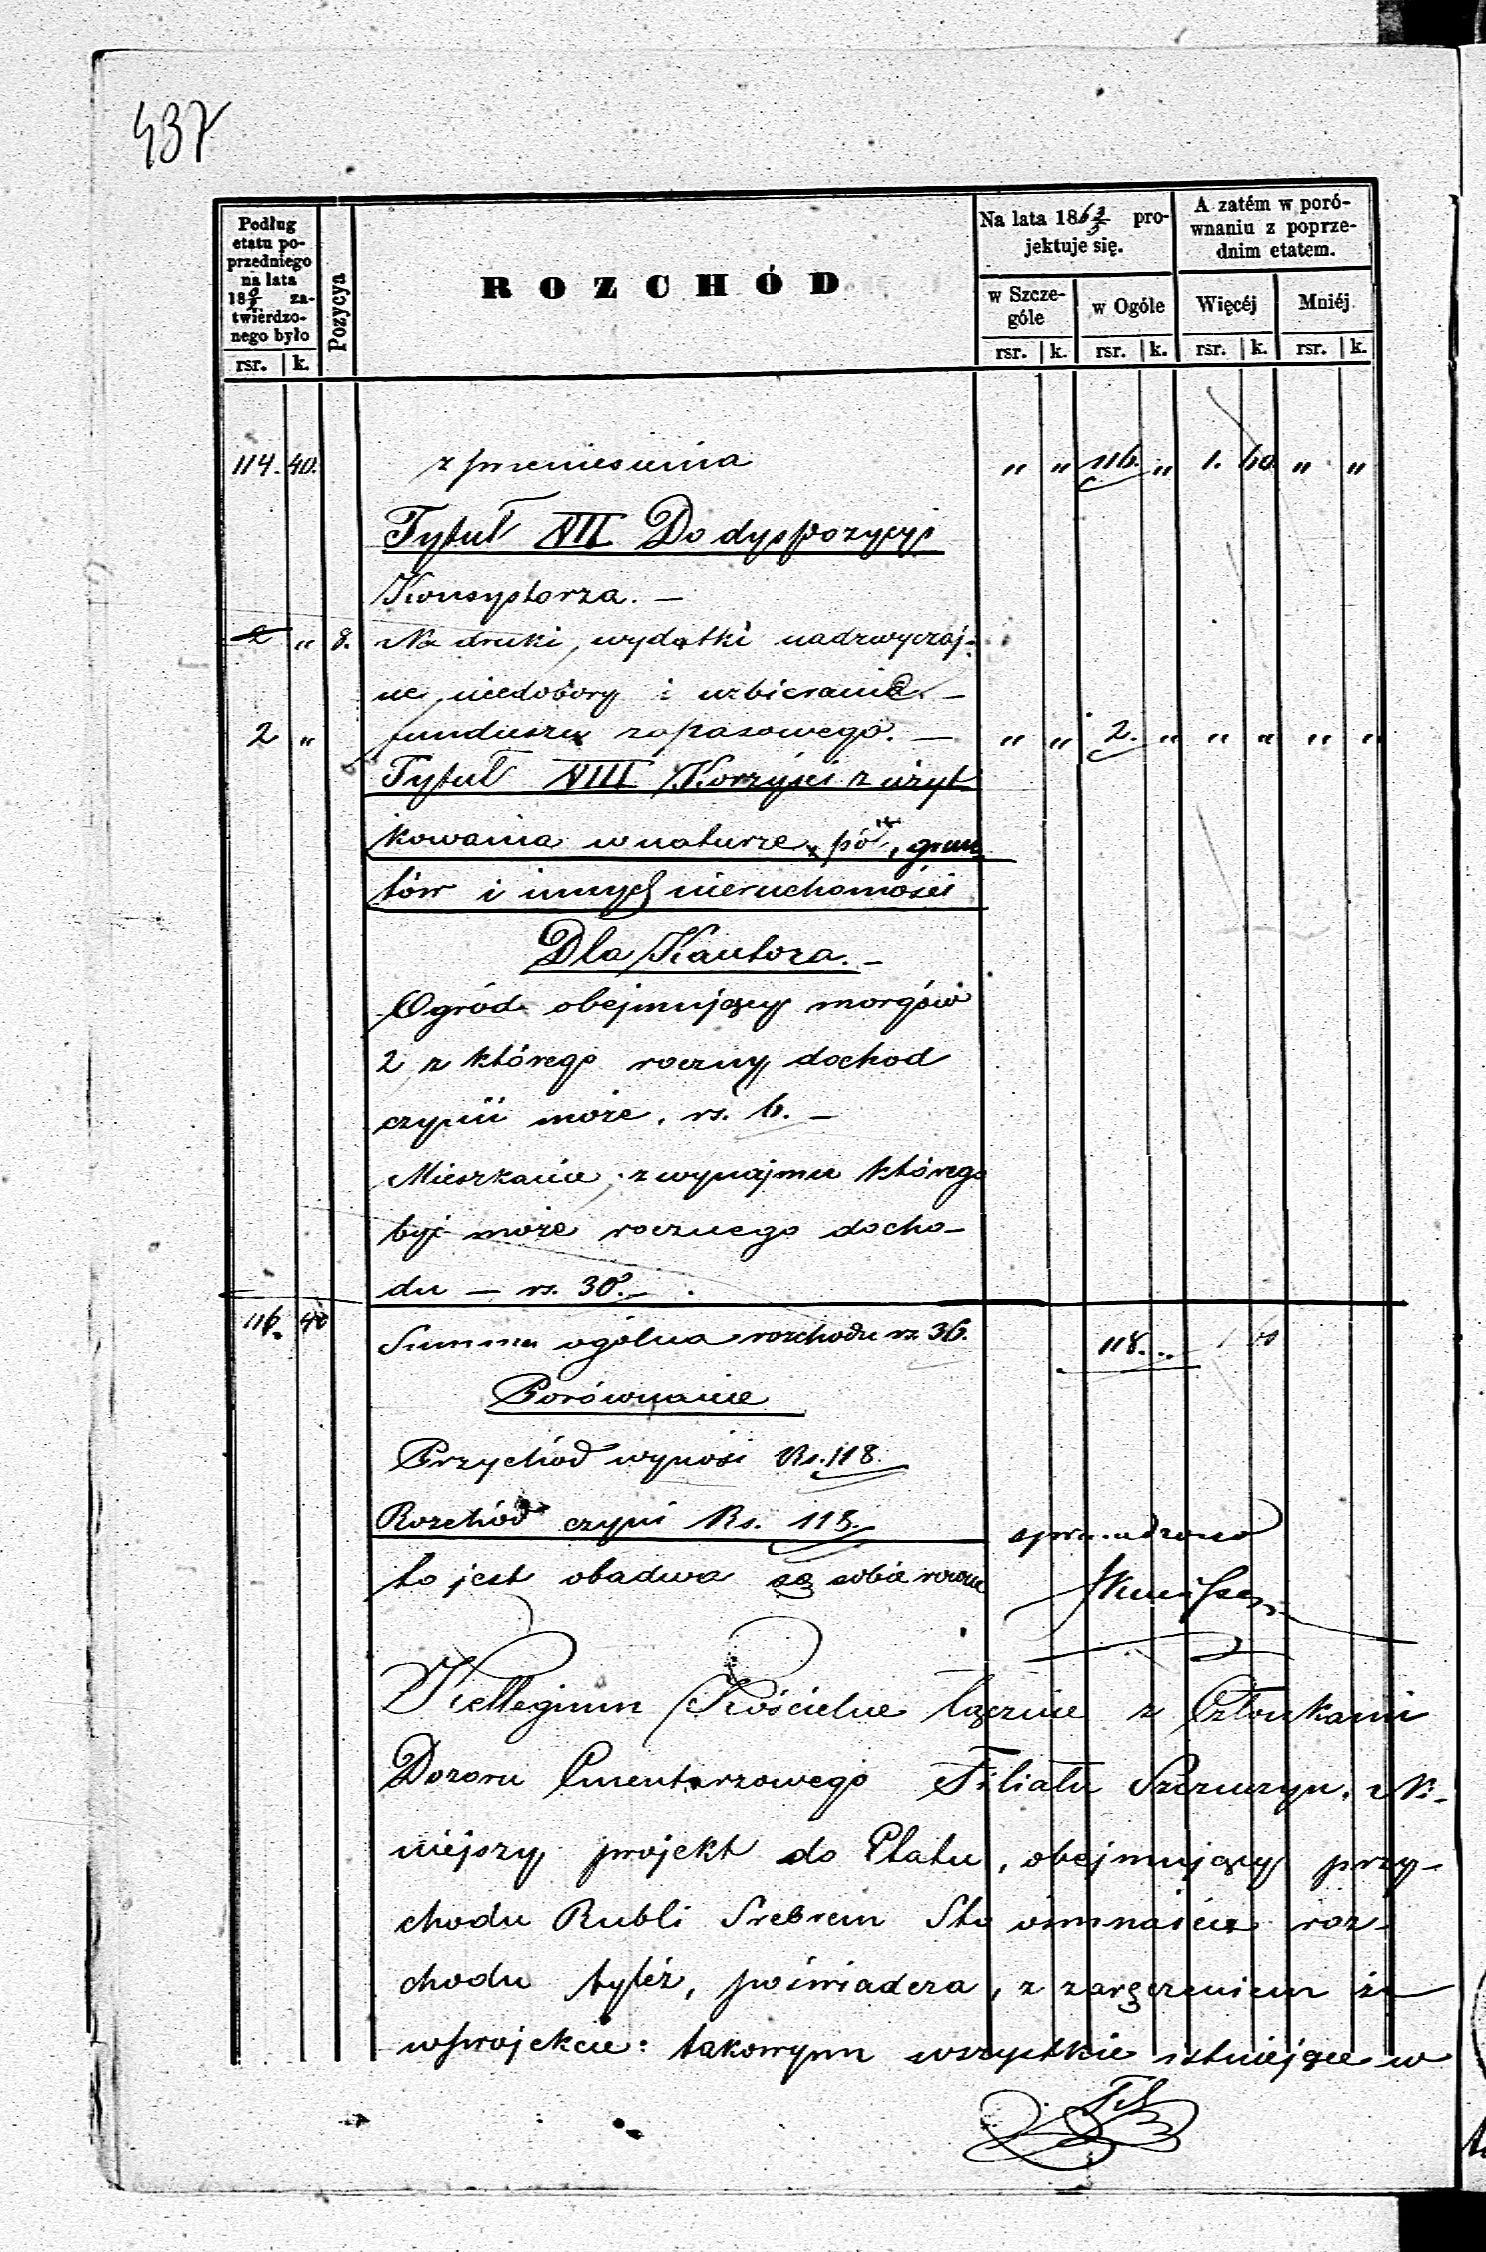 437
Podług etatu poprzedniego na lata 18 0/2 zatwierdzonego było
Pozycya
ROZCHÓD
Na lata 186 3/5 projektuje się.
A zatém w porównaniu z poprzednim etatem.
w Szczególe
w Ogóle
Więcéj
Mniéj
rsr. k. rsr. k. rsr. k. rsr. k. rsr. k.
114. 40. z przeniesienia " " 116. " 1. 60 " "
Tytuł VII Do dyspozycyi
Konsystorza. —
2 " 8. Na druki, wydatki nadzwyczaj-
ne, niedobory i uzbieranie —
2 " funduszu zapasowego. — " " 2. " " " " "
Tytuł VIII Korzyści z użyt
kowania w naturze, pól, grun
tów i innych nieruchomości
Dla Kantora. —
Ogród obejmujący morgów
2, z którego roczny dochod
czynić może, rs. 6. —
Mieszkanie, z wynajmu którego
być może rocznego docho-
du — rs. 30. —
116. 40 Summa ogólna rozchodu rs 36. 118. " 1 60
Porównanie
Przychód wynosi Rs. 118.
Rozchód czyni Rs. 118.
to jest obadwa są sobie rowne
sprawdzono
Kollegium Kościelne łącznie z Członkami
Dozoru Cmentarzowego Filiału Szczuczyn, Ni-
niejszy projekt do Etatu, obejmujący przy-
chodu Rubli Srebrem Sto ośmnaście roz-
chodu tyléż, poświadcza, z zaręczeniem że
w projekcie: takowym wszystkie istniejące w